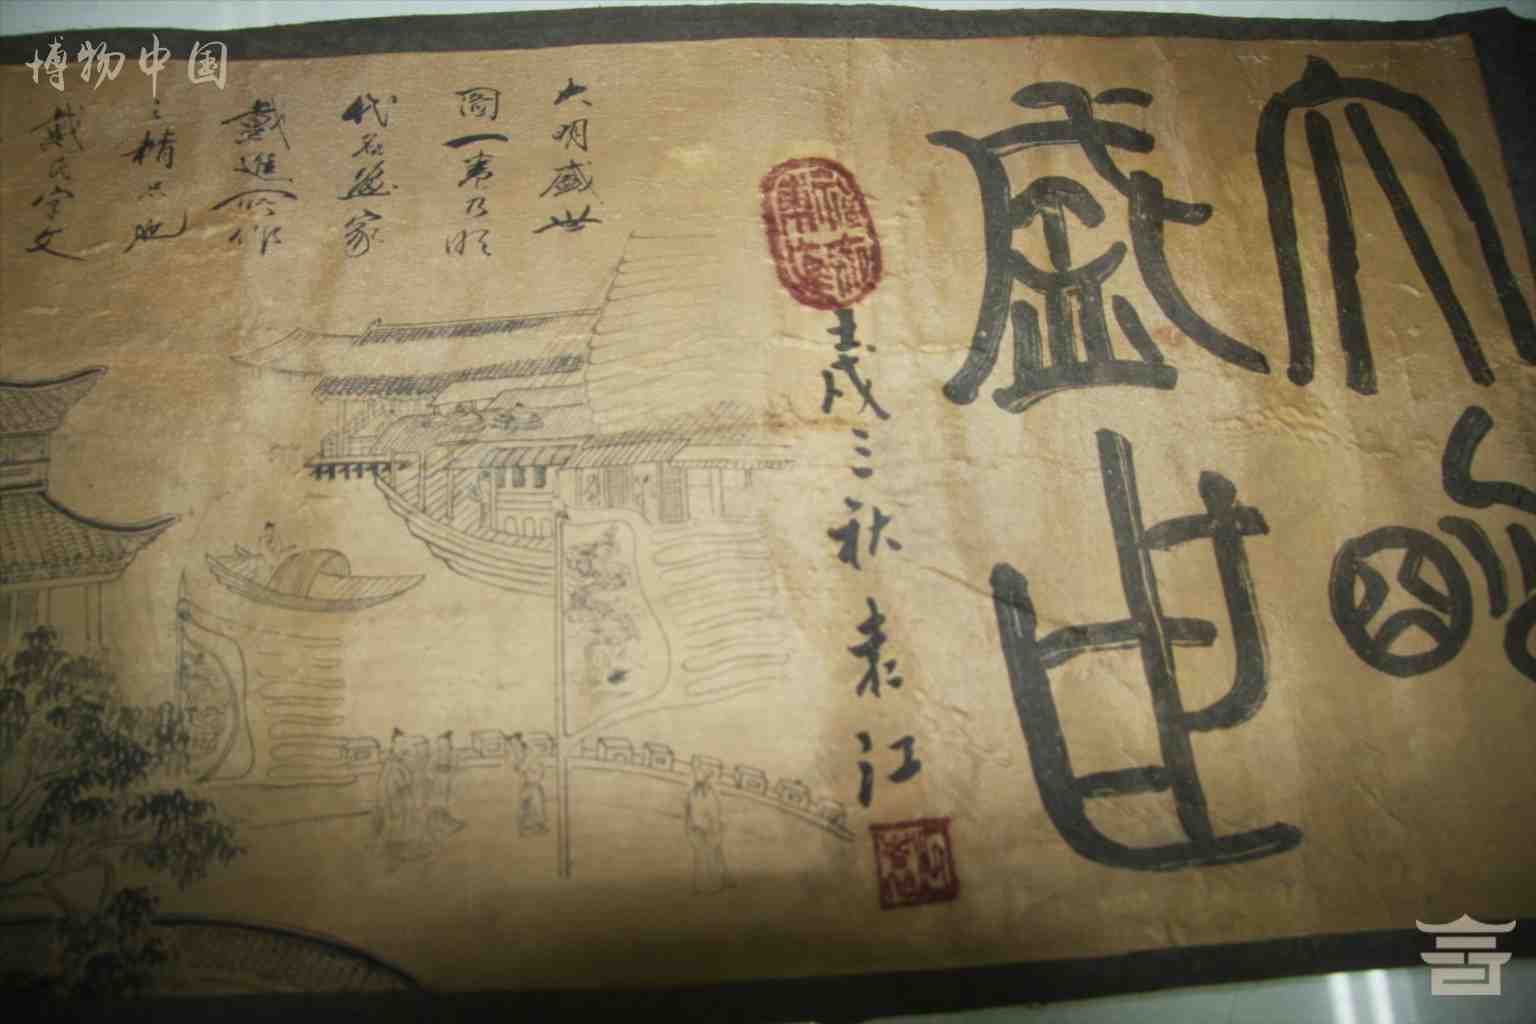 博物中国
大明
盛世
壬戌三秋袁江
大明盛世
圖一卷乃明
代名画家
戴進所作
之精品也
戴氏字文